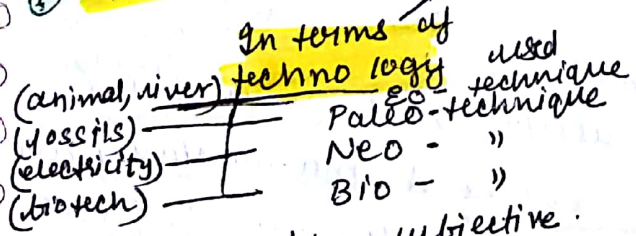 In terms of
technology used
(animal, river) Eo - technique
(fossils) Paleo-technique
(electricity) Neo - "
(biotech) Bio - "
subjective.